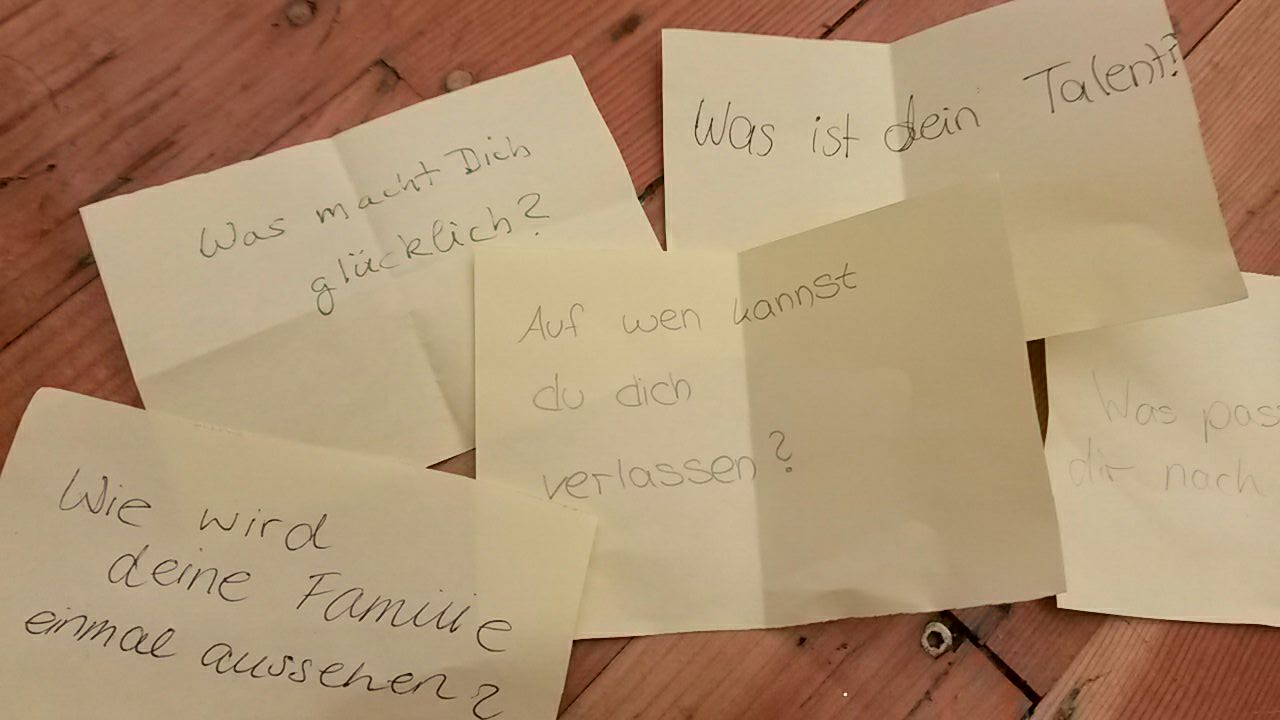 Was macht Dich
glücklich?
Was ist dein Talent?
Auf wen kannst
du dich
verlassen?
Wie wird
deine Familie
einmal aussehen?
Was pas
dir nach